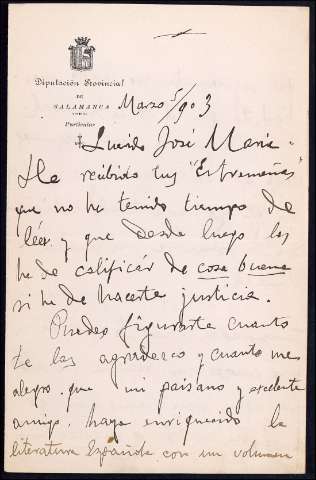 Diputación Provincial
DE
SALAMANCA
Particular
Marzo 5/903
Querido José María.
He recibido tus "Extremeñas"
que no he tenido tiempo de
léer y que desde luego las
he de calificár de cosa buena
si he de hacerte justicia.
Puedes figurarte cuanto
te las agradezco y cuanto me
alegro que mi paisano y excelente
amigo haya enriquecido la
literatura Española con un volumen